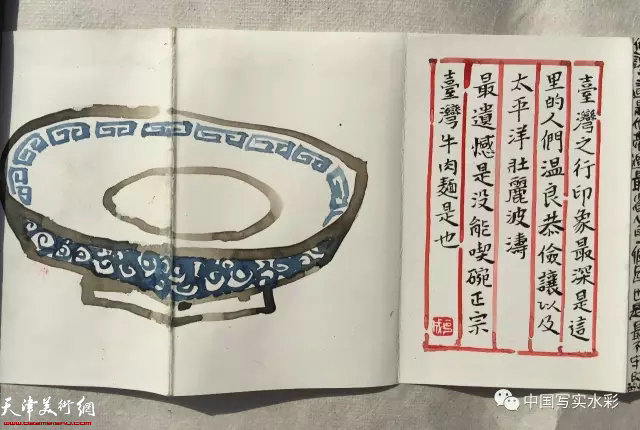 臺灣之行印象最深是這
里的人們温良恭儉讓以及
太平洋壯麗波濤
最遺憾是没能喫碗正宗
臺灣牛肉麵是也
天津美術網
中国写实水彩